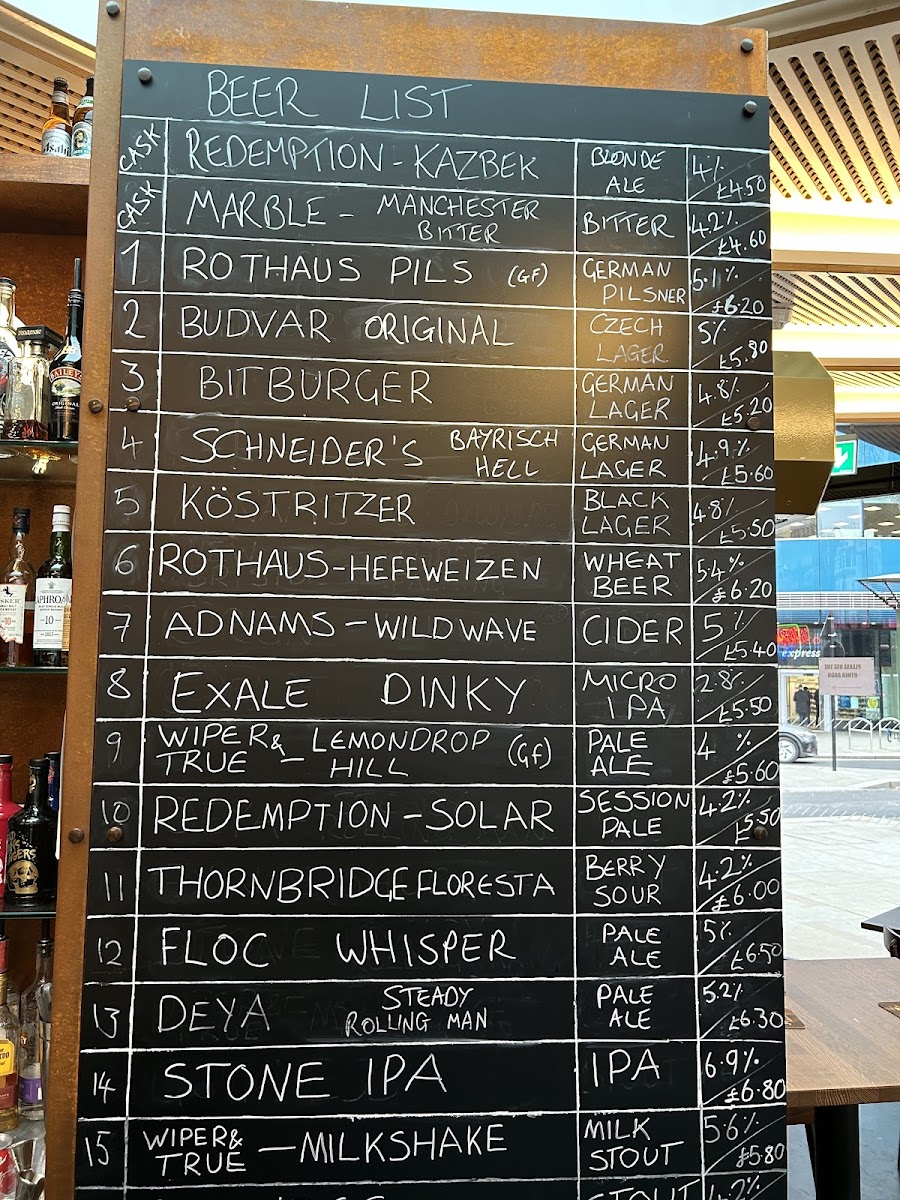 BEER LIST
CASK REDEMPTION - KAZBEK BLONDE ALE 4% £4.50
CASK MARBLE - MANCHESTER BITTER BITTER 4.2% £4.60
1 ROTHAUS PILS (GF) GERMAN PILSNER 5.1% £6.20
2 BUDVAR ORIGINAL CZECH LAGER 5% £5.80
3 BITBURGER GERMAN LAGER 4.8% £5.20
4 SCHNEIDER'S BAYRISCH HELL GERMAN LAGER 4.9% £5.60
5 KÖSTRITZER BLACK LAGER 4.8% £5.50
6 ROTHAUS-HEFEWEIZEN WHEAT BEER 5.4% £6.20
7 ADNAMS - WILDWAVE CIDER 5% £5.40
8 EXALE DINKY MICRO IPA 2.8% £5.50
9 WIPER & TRUE - LEMONDROP HILL (GF) PALE ALE 4% £5.60
10 REDEMPTION - SOLAR SESSION PALE 4.2% £5.50
11 THORNBRIDGE FLORESTA BERRY SOUR 4.2% £6.00
12 FLOC WHISPER PALE ALE 5% £6.50
13 DEYA STEADY ROLLING MAN PALE ALE 5.2% £6.30
14 STONE IPA IPA 6.9% £6.80
15 WIPER & TRUE - MILKSHAKE MILK STOUT 5.6% £5.80
STOUT 4.2%
BAILEYS
ORIGINAL
10
10
express
PLEASE USE THE
OTHER DOOR